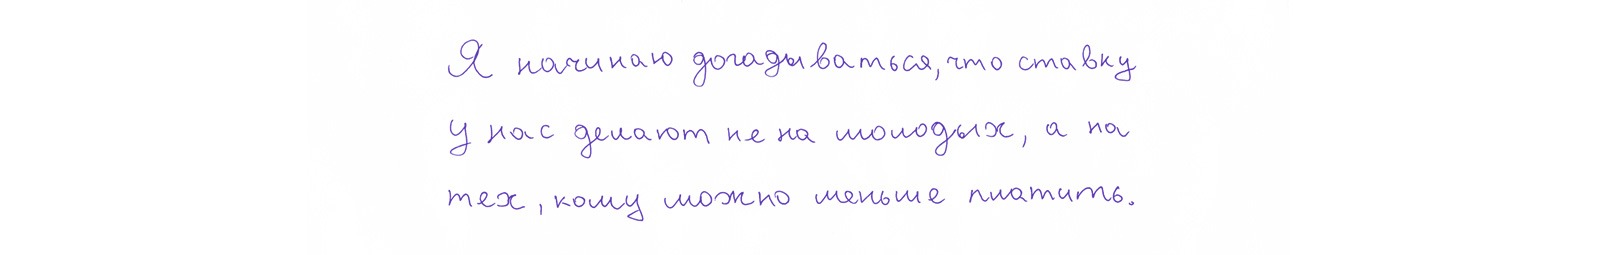 Я начинаю догадываться, что ставку
у нас делают не на молодых, а на
тех, кому можно меньше платить.